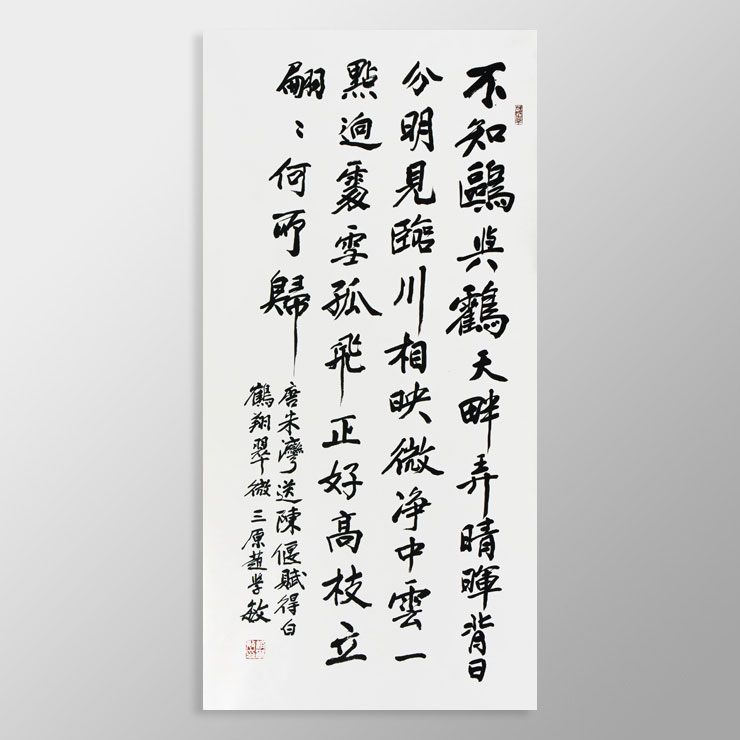 不知鷗與鶴天畔弄晴暉背日
分明見臨川相映微净中雲一
點迥處雪孤飛正好高枝立
翩〻何所歸
唐朱灣送陳偃賦得白
鶴翔翠微三原趙學敏